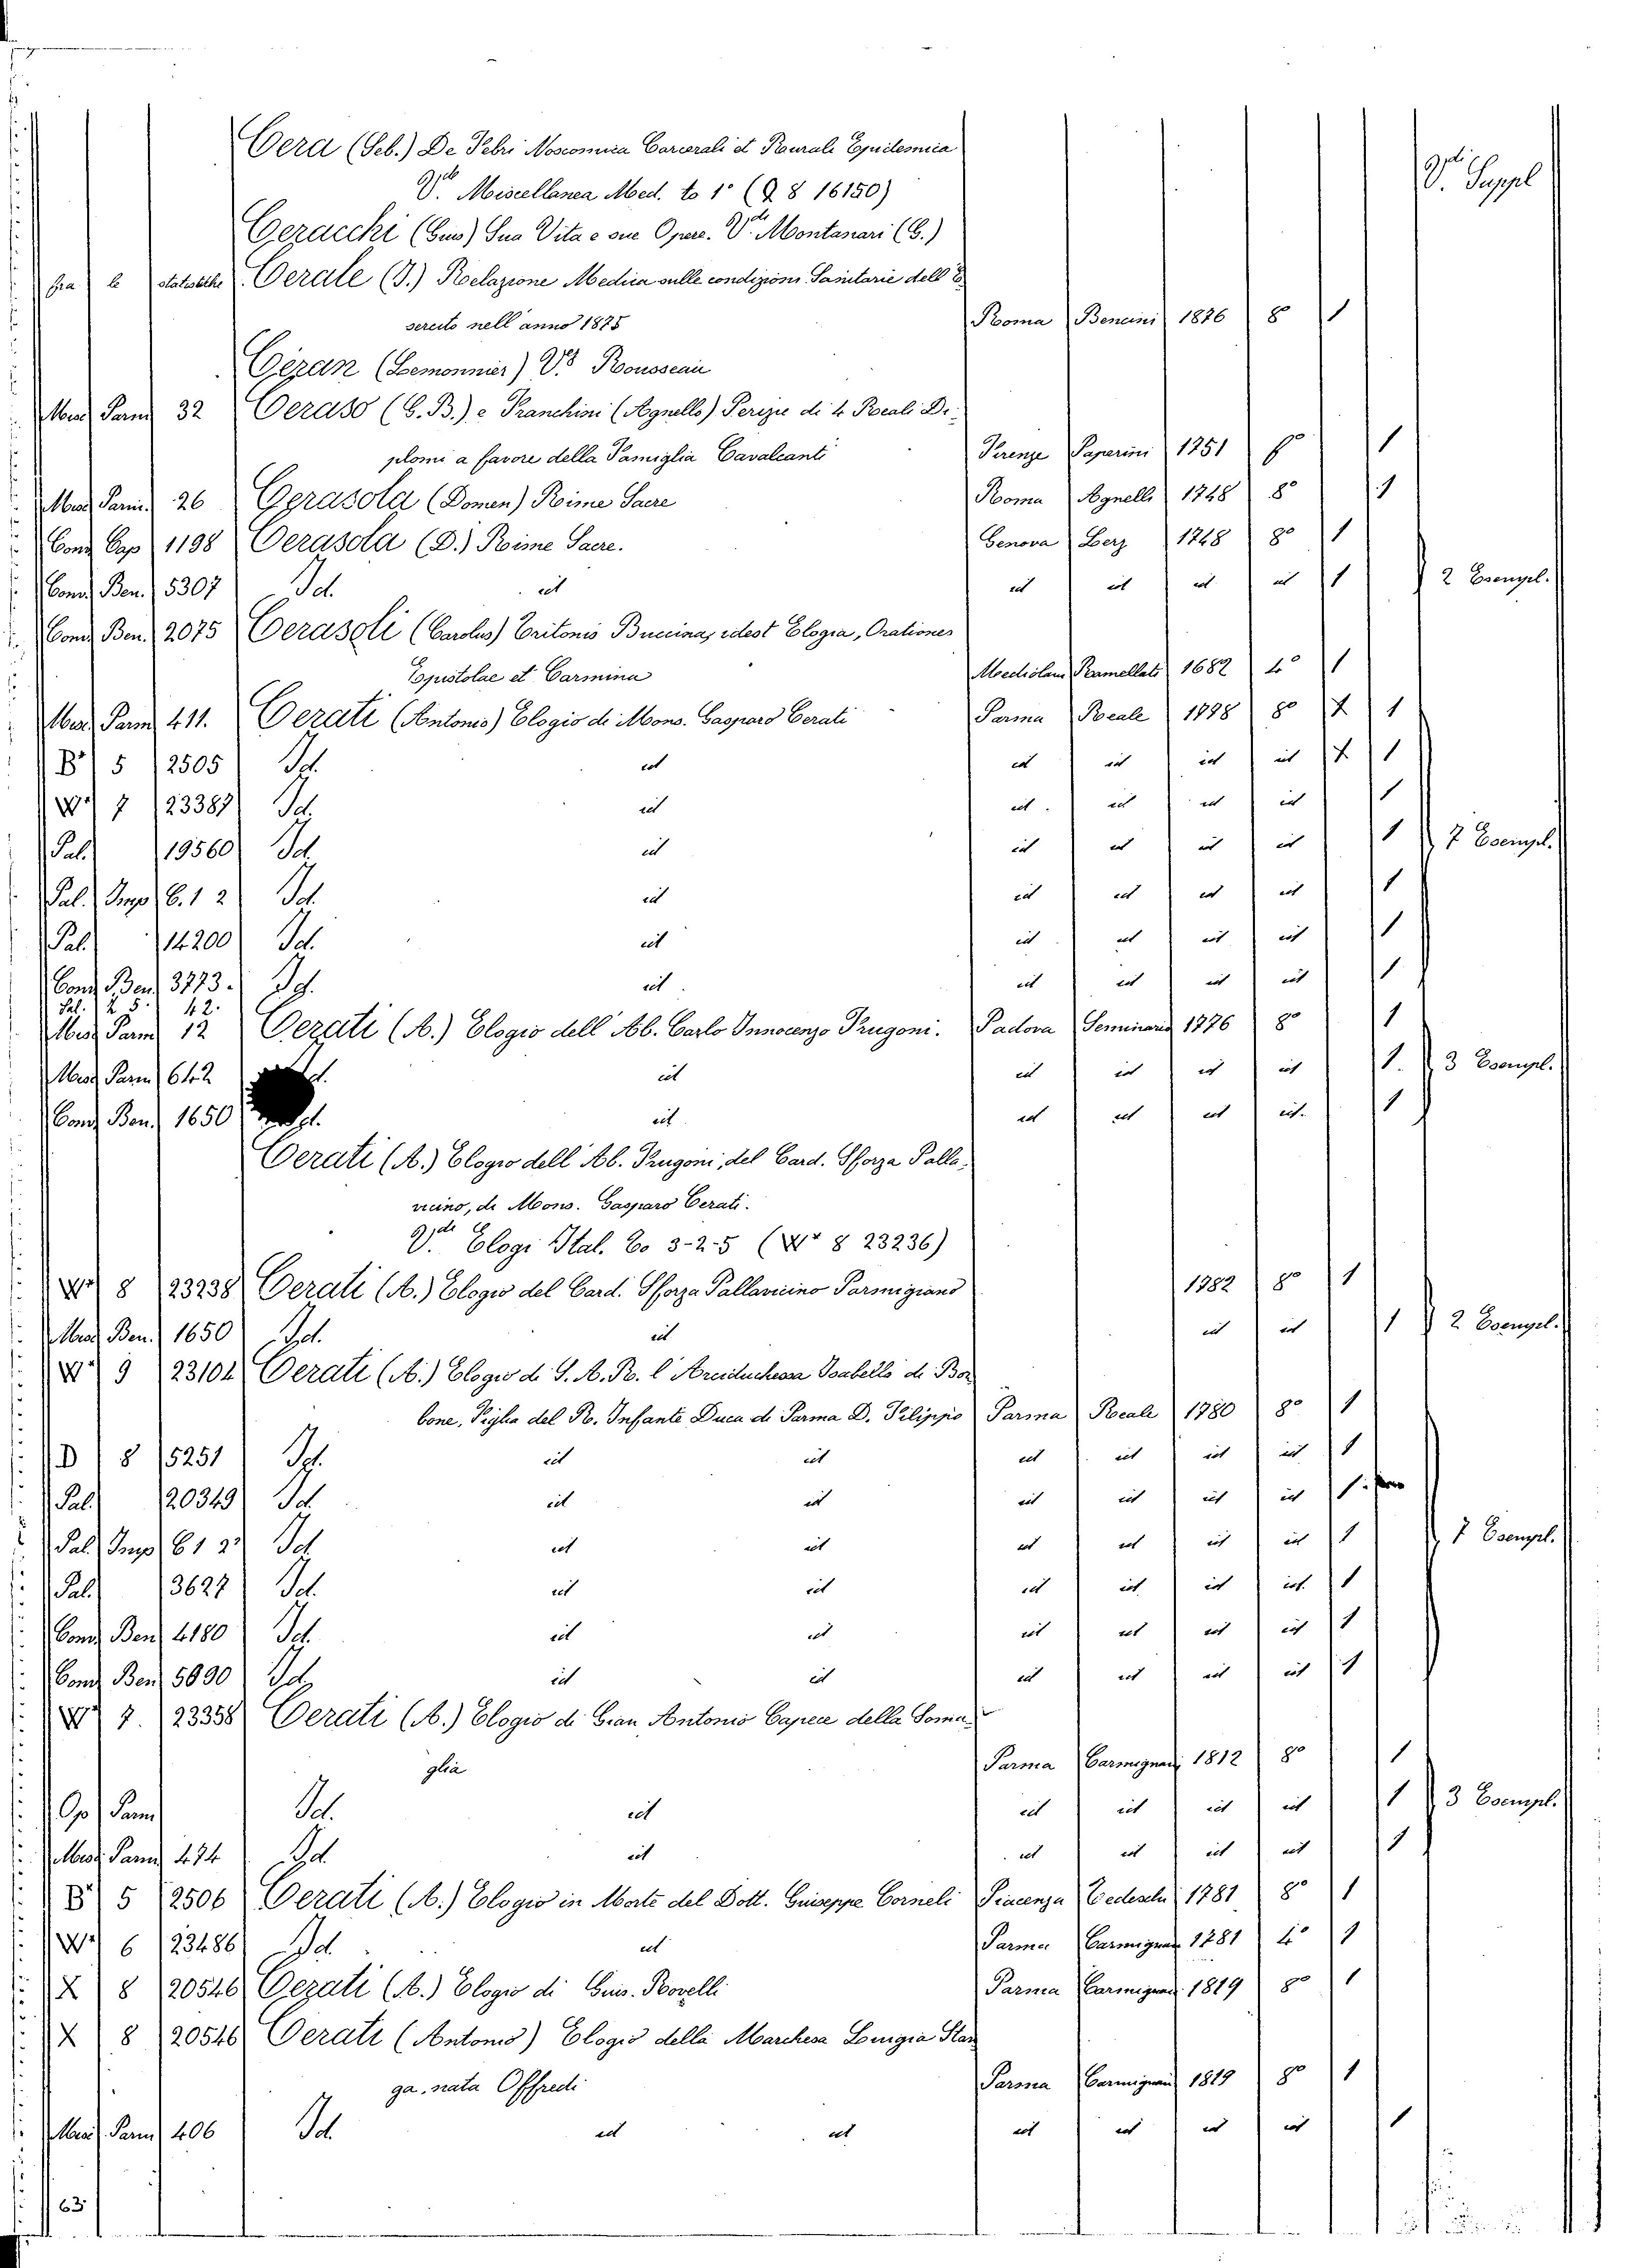 Cera (Seb.) De Febri Nosocomica Carcerali et Rurale Epidemica
V. Miscellanea Med. to 1° (Q 8 16150) V. Suppl
Ceracchi (Gius) Sua Vita e sue Opere. V. Montanari (G.)
fra le statistiche Cerale (J.) Relazione Medica sulle condizioni Sanitarie dell'E
sercito nell'anno 1875 Roma Bencini 1876 8° 1
Cézan (Lemonnier) V. Rousseau
Misc Parm 32 Ceraso (G. B.) e Franchini (Agnello) Perizie di 4 Reali Di-
plomi a favore della Famiglia Cavalcanti Firenze Paperini 1751 f° 1
Misc Parm. 26 Cerasola (Domen) Rime Sacre Roma Agnelli 1748 8° 1
Cons Cap 1198 Cerasola (D.) Rime Sacre. Genova Lerz 1768 8° 1
Cons Ben. 5307 Id. id id id id id 1 2 Esempl.
Cons Ben. 2075 Cerasoli (Carolus) Tritonis Buccina, idest Elogia, Orationes
Epistolae et Carmina Mediolani Ramellati 1682 4° 1
Misc Parm 411. Cerati (Antonio) Elogio di Mons. Gasparo Cerati Parma Reale 1778 8° 1
B* 5 2505 Id. id id id id id 1
W* 7 23387 Id. id id id id id 1
Pal. 19560 Id. id id id id id 1 7 Esempl.
Pal. Imp 6. 1 2 Id. id id id id id 1
Pal. 14200 Id. id id id id id 1
Cons Ben 3773. Id. id id id id id 1
Pal. 2 5. 42.
Misc Parm 12 Cerati (A.) Elogio dell'Ab. Carlo Innocenzo Frugoni. Padova Seminario 1776 8° 1
Misc Parm 642 Id. id id id id id 1. 3 Esempl.
Cons Ben. 1650 Id. id id id id id. 1
Cerati (A.) Elogio dell'Ab. Frugoni, del Card. Sforza Palla-
vicino, di Mons. Gasparo Cerati.
V. Elogi Ital. to 3-2-5 (W* 8 23236)
W* 8 23238 Cerati (A.) Elogio del Card. Sforza Pallavicino Parmigiano 1782 8° 1
Misc Ben. 1650 Id. id id id 1 2 Esempl.
W* 9 23104 Cerati (A.) Elogio di S. A. R. l'Arciduchessa Isabella di Bor
bone, Figlia del R. Infante Duca di Parma D. Filippo Parma Reale 1780 8° 1
D 8 5251 Id. id id id id id id 1
Pal. 20349 Id. id id id id id id 1.
Pal. Imp 6 1 2 Id. id id id id id id 1 7 Esempl.
Pal. 3627 Id. id id id id id id. 1
Cons Ben 4180 Id. id id id id id id 1
Cons Ben 5090 Id. id id id id id id 1
W* 7. 23358 Cerati (A.) Elogio di Gian Antonio Capece della Soma
glia Parma Carmignani 1812 8° 1
Op Parm Id. id id id id id 1 3 Esempl.
Misc Parm 474 Id. id id id id id 1
B* 5 2506 Cerati (A.) Elogio in Morte del Dott. Giuseppe Corneli Piacenza Tedeschi 1781 8° 1
W* 6 23486 Id. id Parma Carmignani 1781 4° 1
X 8 20546 Cerati (A.) Elogio di Gius. Rovelli Parma Carmignani 1819 8° 1
X 8 20546 Cerati (Antonio) Elogio della Marchesa Luigia Stan
ga, nata Offredi Parma Carmignani 1819 8° 1
Misc. Parm 406 Id. id id id id id id 1
63